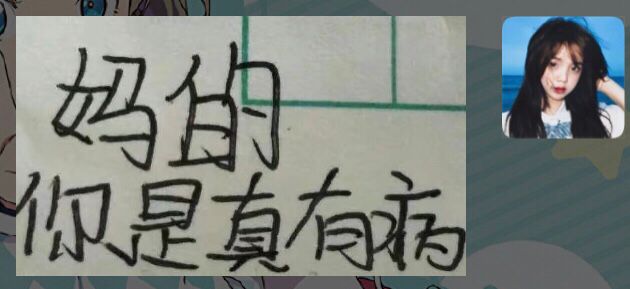 妈的
你是真有病